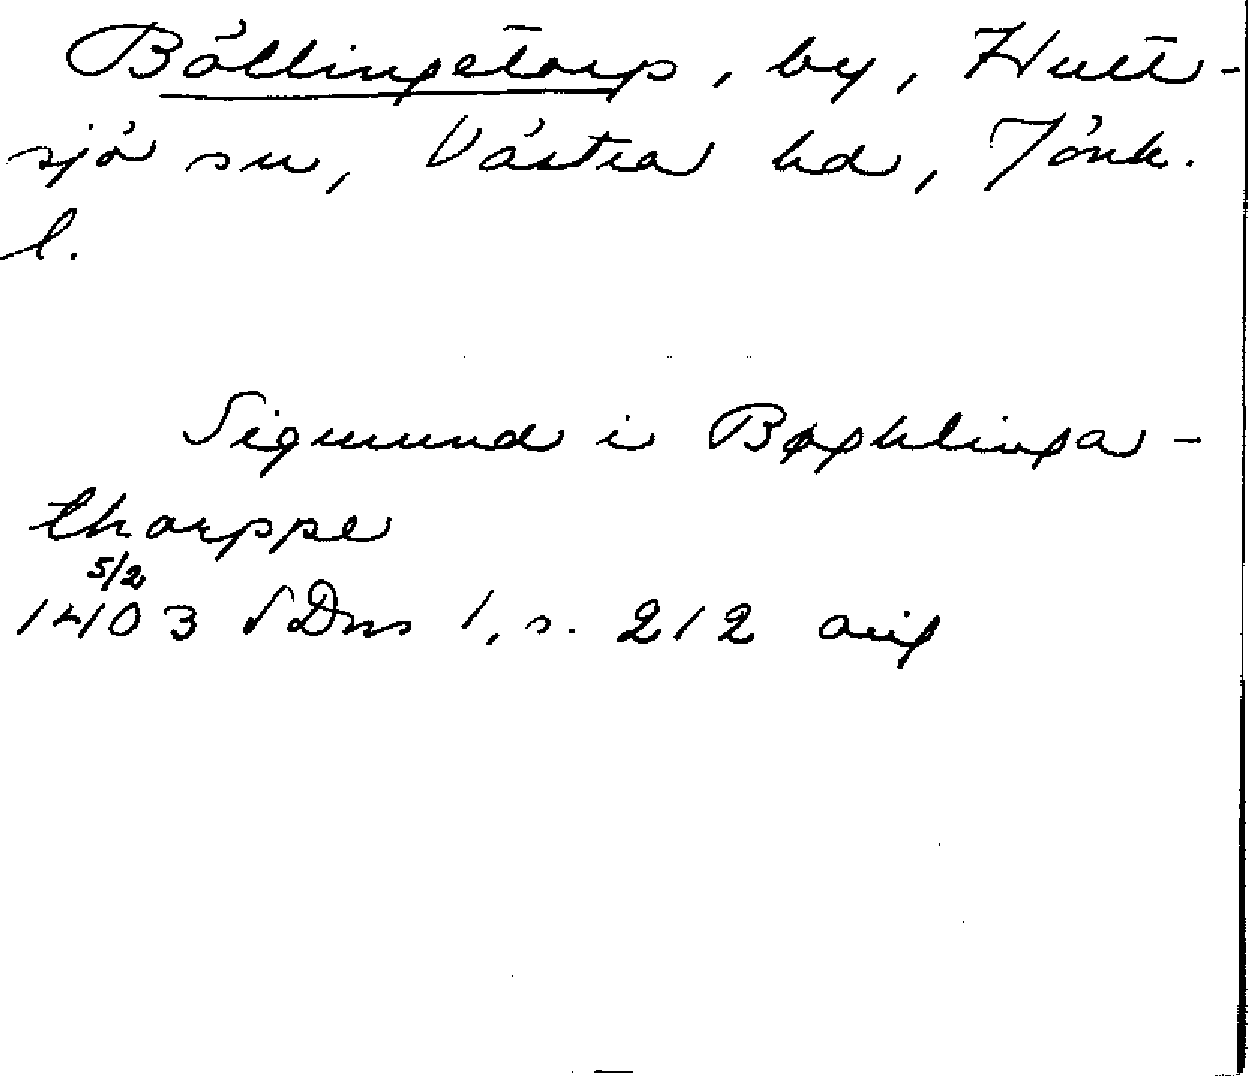 Bällingetorp, by, Hult-
sjö sn, Västra hd, Jönk.
l.
Sigmund i Bøghlinga-
thorppe
5/2
1403 SDns 1, s. 212 avig